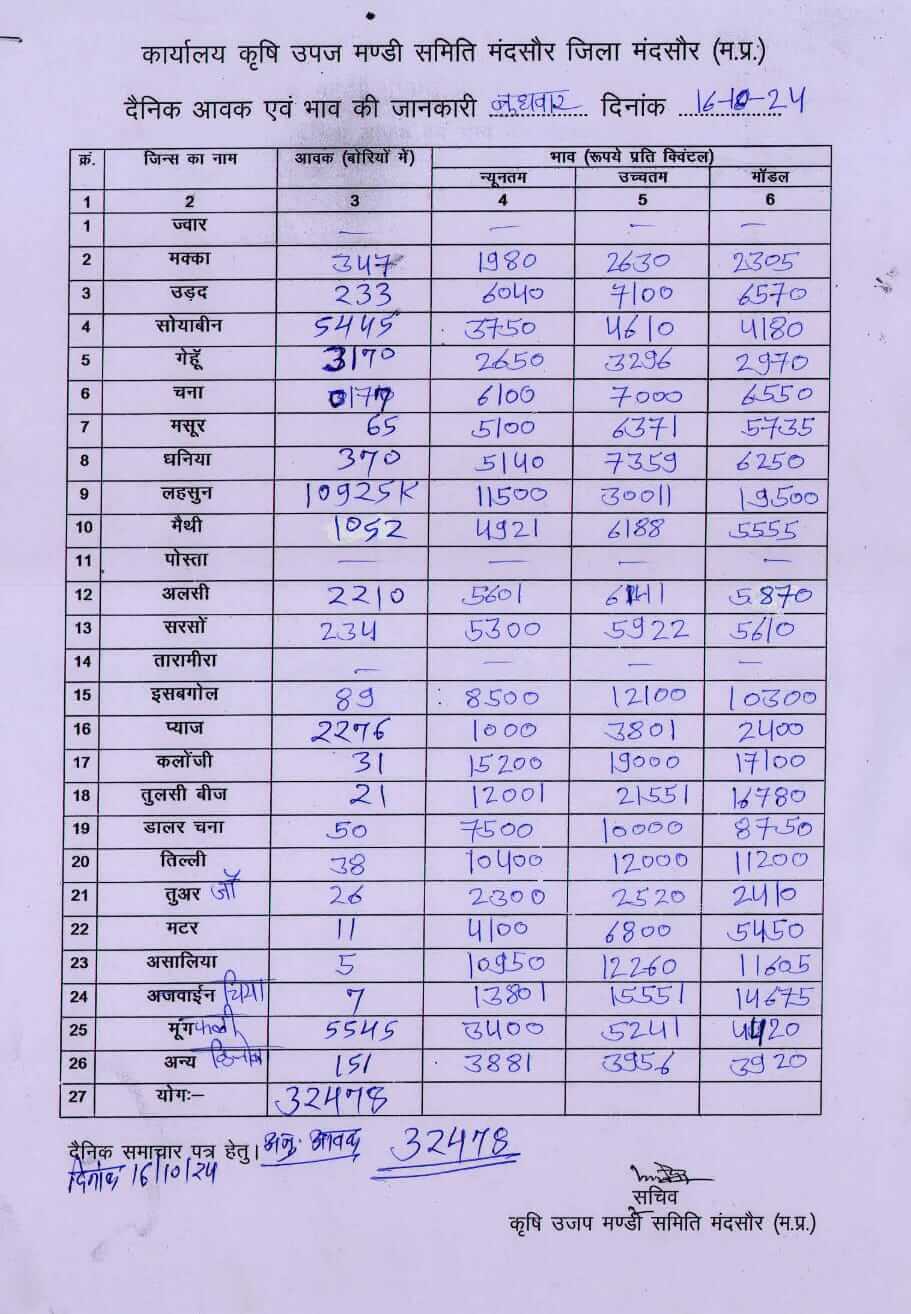 कार्यालय कृषि उपज मण्डी समिति मंदसौर जिला मंदसौर (म.प्र.)
दैनिक आवक एवं भाव की जानकारी बुधवार दिनांक 16-10-24
क्रं. जिन्स का नाम आवक (बोरियों में) भाव (रूपये प्रति क्विंटल)
न्यूनतम उच्चतम मॉडल
1 2 3 4 5 6
1 ज्वार — — — —
2 मक्का 347 1980 2630 2305
3 उड़द 233 6040 7100 6570
4 सोयाबीन 5445 3750 4610 4180
5 गेहूॅ 3170 2650 3296 2970
6 चना 6100 7000 6550
7 मसूर 65 5100 6371 5735
8 धनिया 370 5140 7359 6250
9 लहसुन 10925K 11500 30011 19500
10 मैथी 1052 4921 6188 5555
11 पोस्ता — — — —
12 अलसी 2210 5601 6141 5870
13 सरसों 234 5300 5922 5610
14 तारामीरा — — — —
15 इसबगोल 89 8500 12100 10300
16 प्याज 2276 1000 3801 2400
17 कलोंजी 31 15200 19000 17100
18 तुलसी बीज 21 12001 21551 16780
19 डालर चना 50 7500 10000 8750
20 तिल्ली 38 10400 12000 11200
21 तुअर जौ 26 2300 2520 2410
22 मटर 11 4100 6800 5450
23 असालिया 5 10950 12260 11605
24 अजवाईन चिया 7 13801 15551 14675
25 मूंगफली 5545 3400 5241 4420
26 अन्य 151 3881 3956 3920
27 योगः– 32478
दैनिक समाचार पत्र हेतु। अनु. आवक 32478
दिनांक 16/10/24
सचिव
कृषि उजप मण्डी समिति मंदसौर (म.प्र.)